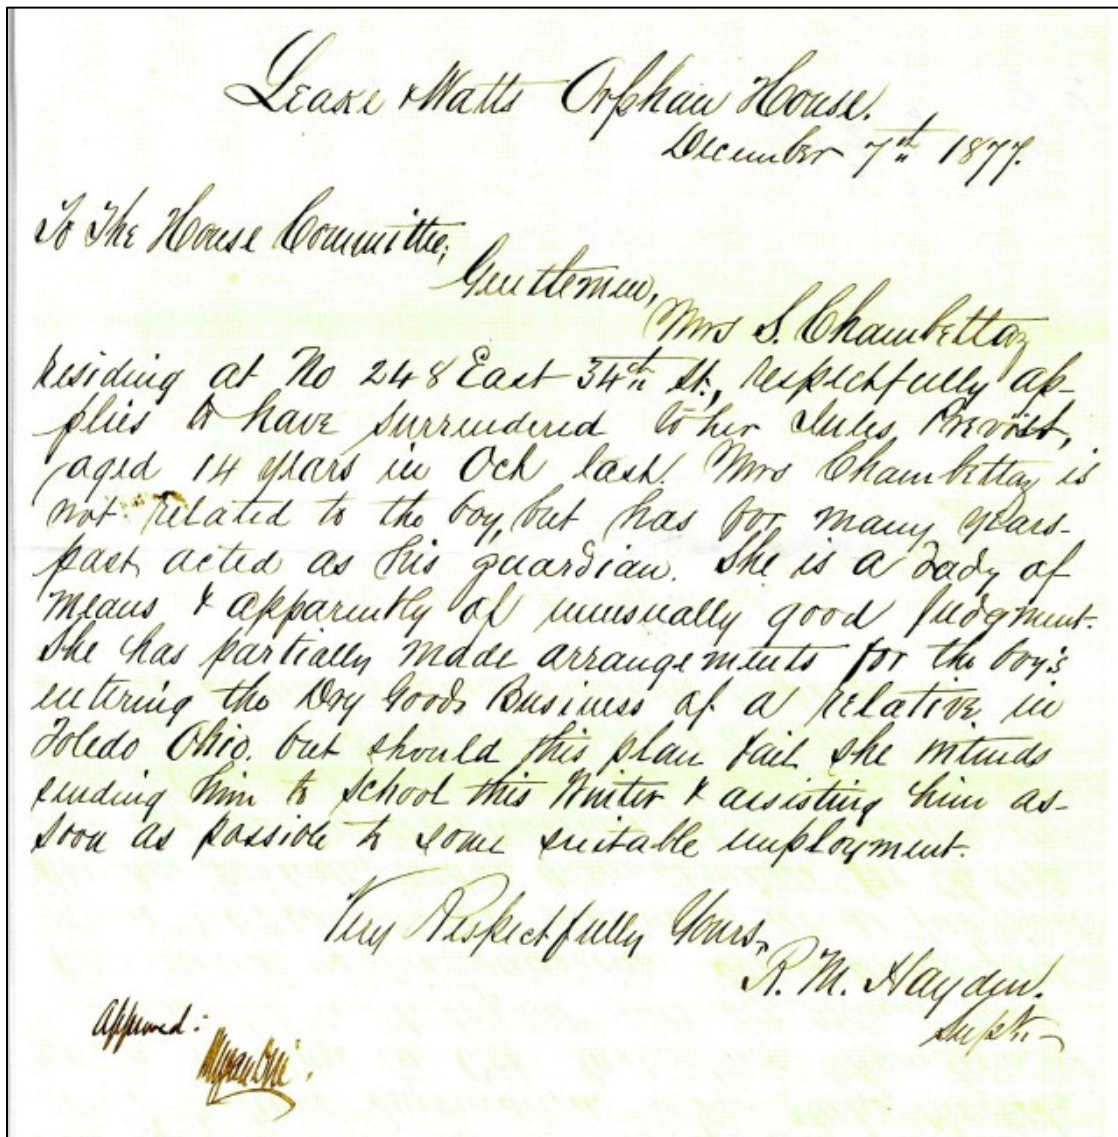 Leake & Watts Orphan House.
December 7th 1877.
To The House Committee,
Gentlemen,
Mrs S. Chambettaz
residing at No 248 East 34th St., respectfully ap-
plies to have surrendered to her Jules Prevost,
aged 14 years in Oct last. Mrs Chambettaz is
not related to the boy, but has for many years
past acted as his guardian. She is a Lady of
means & apparently of unusually good judgment.
She has partially made arrangements for the boy's
entering the Dry Goods Business of a relative in
Toledo Ohio. but should this plan fail she intends
sending him to school this Winter & assisting him as
soon as possible to some suitable employment.
Very Respectfully Yours,
R. M. Hayden.
Supt.
Approved: